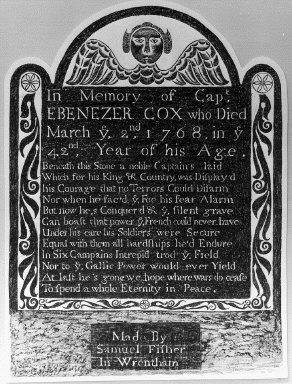 In Memory of Capt.
EBENEZER COX who Died
March ye. 2,nd 1768, in ye
42,nd Year of his Age,
Beneath this Stone a noble Captain's laid
Which for his King & Country, was Display'd
his Courage that no Terrors Could Disarm
Nor when he fac'd ye. Foe his fear Alarm
But now he,s Conquer'd & ye, silent grave
Can boast that power ye, French could never have
Under his care his Soldiers were Secure
Equal with them all hardships he'd Endure
In Six Campains Intrepid trod ye, Field
Nor to ye, Gallic Power would ever Yield
At last he's gone we hope where wars do cease
To spend a whole Eternity in Peace.
Mad By
Samuel Fisher
In Wrentham